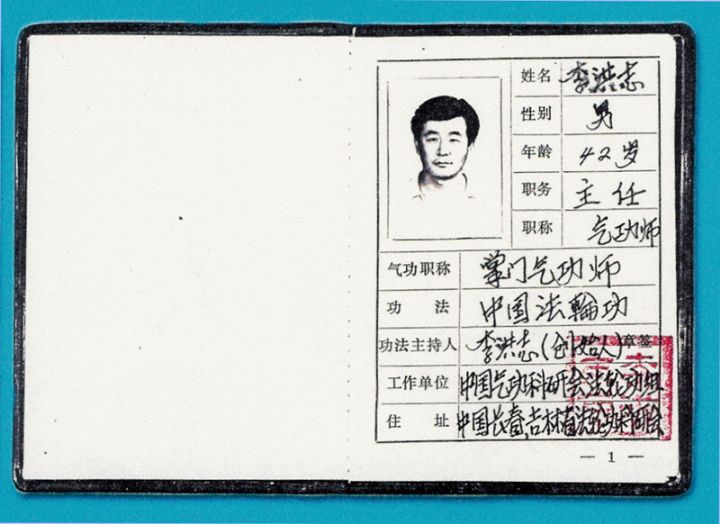 姓名 李洪志
性别 男
年龄 42岁
职务 主任
职称 气功师
气功职称 掌门气功师
功法 中国法輪功
功法主持人 李洪志(创始人) 章签
工作单位 中国气功科研会法轮功组
住址 中国长春,吉林省法轮功科研会
— 1 —